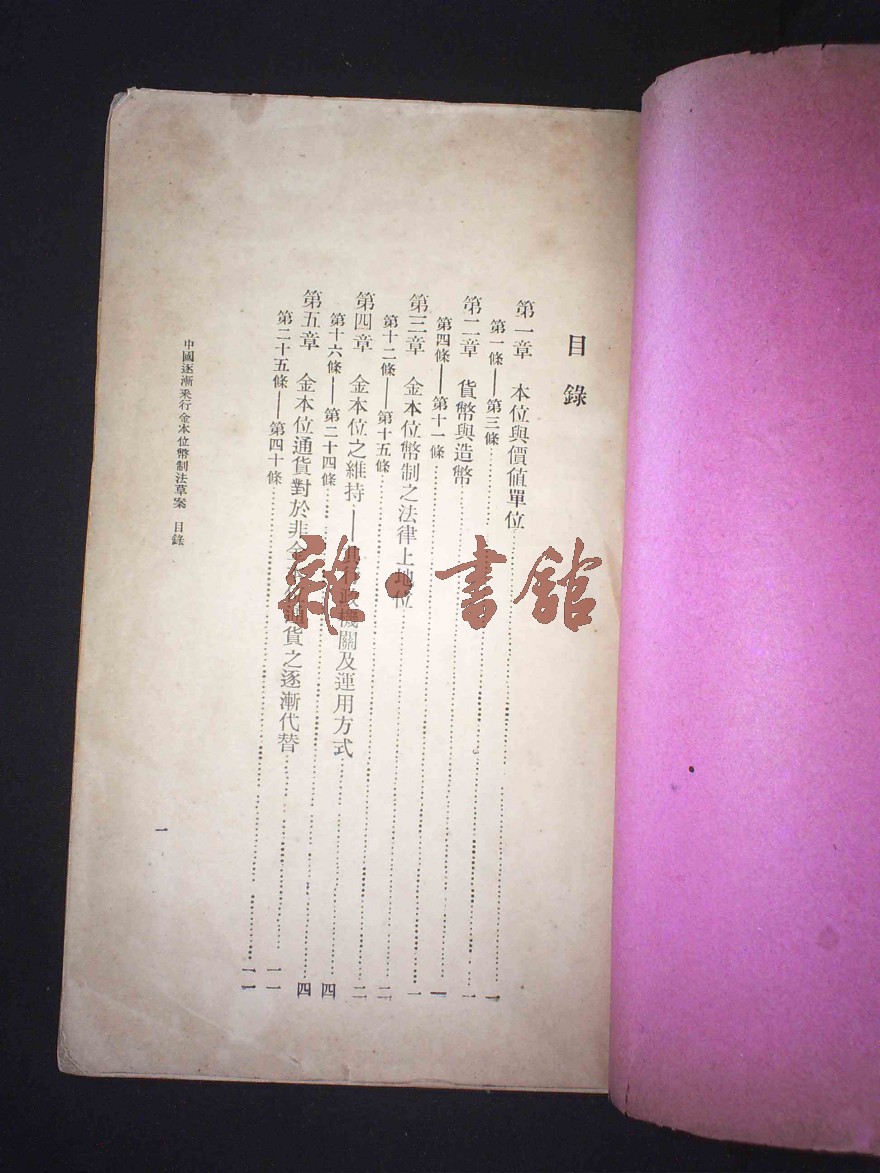 目錄
第一章 本位與價值單位……一
第一條——第三條……一
第二章 貨幣與造幣……一
第四條——第十一條……一
第三章 金本位幣制之法律上地位……二
第十二條——第十五條……二
第四章 金本位之維持——政機關及運用方式……四
第十六條——第二十四條……四
第五章 金本位通貨對於非金通貨之逐漸代替……一一
第二十五條——第四十條……一一
中國逐漸采行金本位幣制法草案 目錄
一
雜·書館